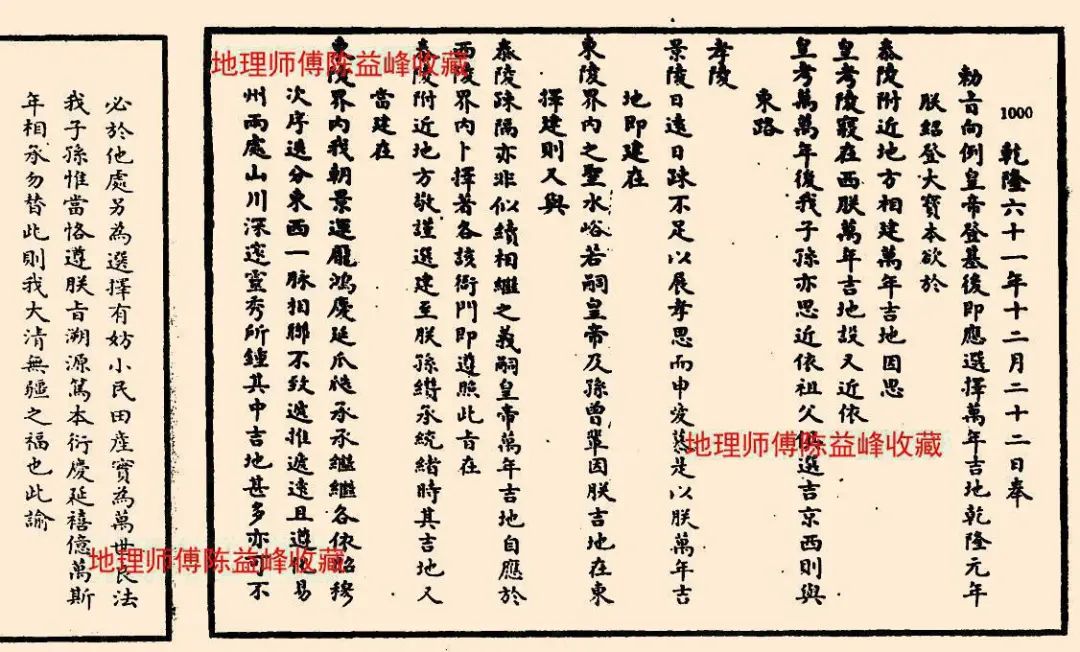 1000 乾隆六十一年十二月二十二日奉
勅旨向例皇帝登基後即應選擇萬年吉地乾隆元年
朕紹登大寶本欲於
泰陵附近地方相建萬年吉地因思
皇考陵寢在西朕萬年吉地設又近依
皇考萬萬年後我子孫亦思近依祖父俱選吉京西則與
東路
孝陵
景陵日遠日疎不足以展孝思而申愛慕是以朕萬年吉
地即建在
東陵界內之聖水峪若嗣皇帝及孫曾輩因朕吉地在東
擇建則又與
泰陵疎隔亦非似續相繼之義嗣皇帝萬年吉地自應於
西陵界內卜擇著各該衙門即遵照此旨在
泰陵附近地方敬謹選建至朕孫纘承統緒時其吉地又
當建在
東陵界內我朝景運龐鴻慶延瓜瓞承承繼繼各依昭穆
次序迭分東西一脉相聯不致遞推遞遠且遵化易
州兩處山川深邃靈秀所鍾其中吉地甚多亦可不
必於他處另為選擇有妨小民田產實為萬世良法
我子孫惟當恪遵朕旨溯源篤本衍慶延禧億萬斯
年相承勿替此則我大清無疆之福也此諭
地理师傅陈益峰收藏
地理师傅陈益峰收藏
地理师傅陈益峰收藏